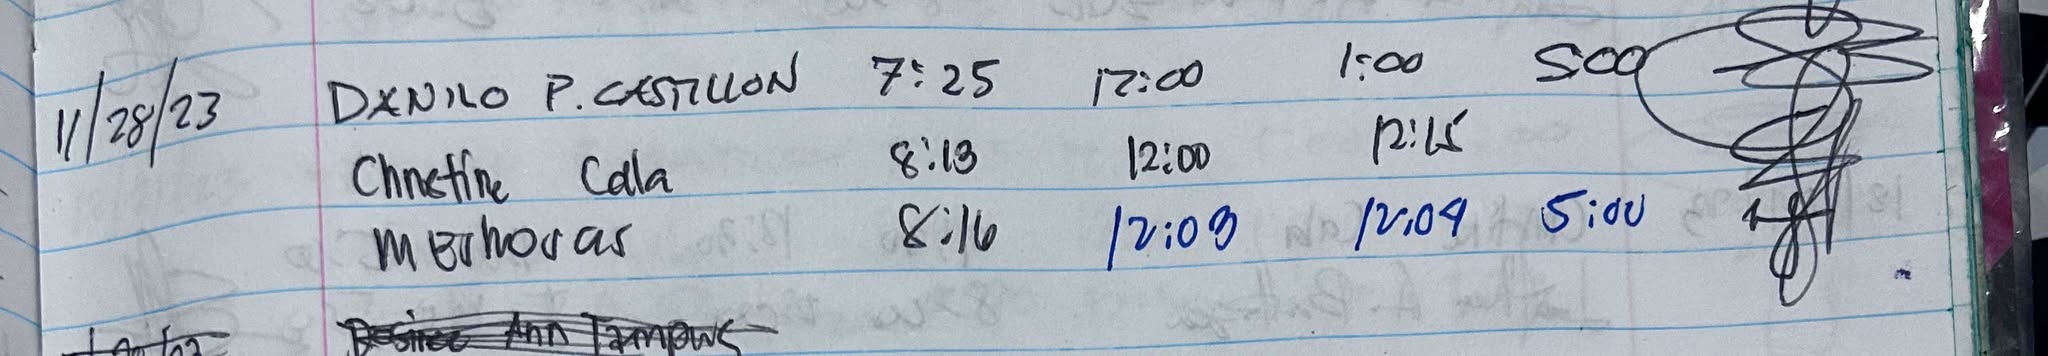 11/28/23 DANILO P. CASTILLON 7:25 12:00 1:00 500
Christine Cdla 8:13 12:00 12:15
8:16 12:03 12:04 5:00
Desiree Ann Tampus